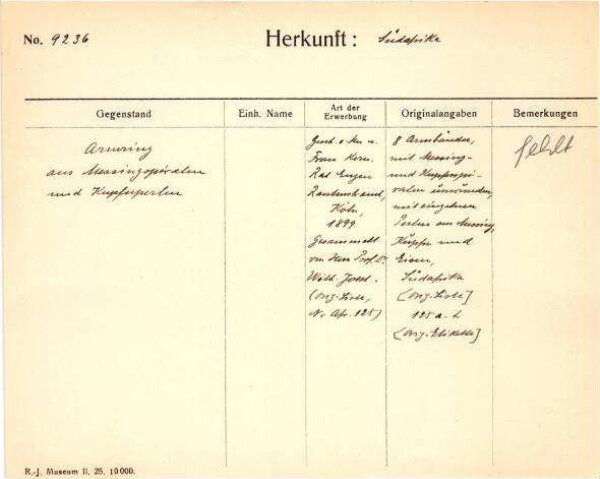 No. 9236 Herkunft: Südafrika
Gegenstand
Einh. Name
Art der
Erwerbung
Originalangaben
Bemerkungen
Armring
aus Messingspiralen
und Kupferperlen
Gesch. v. Hrn u.
Frau Kom.
Rat Eugen
Rautenstrauch,
Köln,
1899
Gesammelt
von Herr Prof. Dr.
Wilh. Joest.
(Orig. Liste,
No Afr. 125)
8 Armbänder,
mit Messing-
und Kupferspi-
ralen umwunden,
mit einzelnen
Perlen aus Messing,
Kupfer und
Eisen,
Südafrika
[Orig. Liste]
125 a-h
[Orig. Etikette]
fehlt
R.-J. Museum II. 28. 10000.